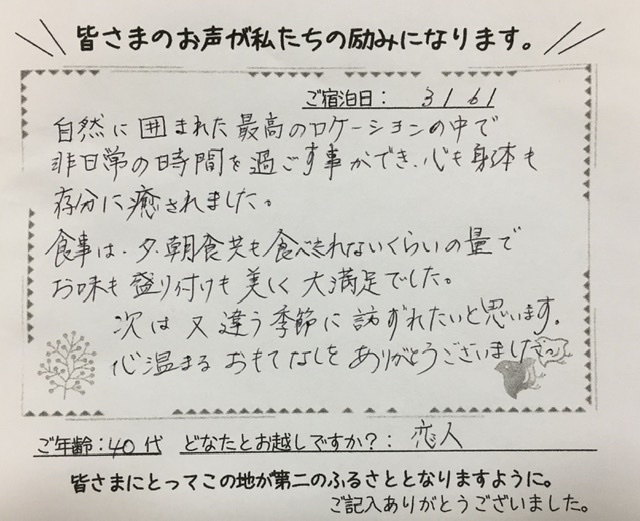 皆さまのお声が私たちの励みになります。
ご宿泊日： 31 6 1
自然に囲まれた最高のロケーションの中で
非日常の時間を過ごす事ができ、心も身体も
存分に癒されました。
食事は、夕、朝食共も食べきれないくらいの量で
お味も盛り付けも美しく大満足でした。
次は又違う季節に訪ずれたいと思います。
心温まるおもてなしをありがとうございました
ご年齢：40代 どなたとお越しですか？： 恋人
皆さまにとってこの地が第二のふるさととなりますように。
ご記入ありがとうございました。